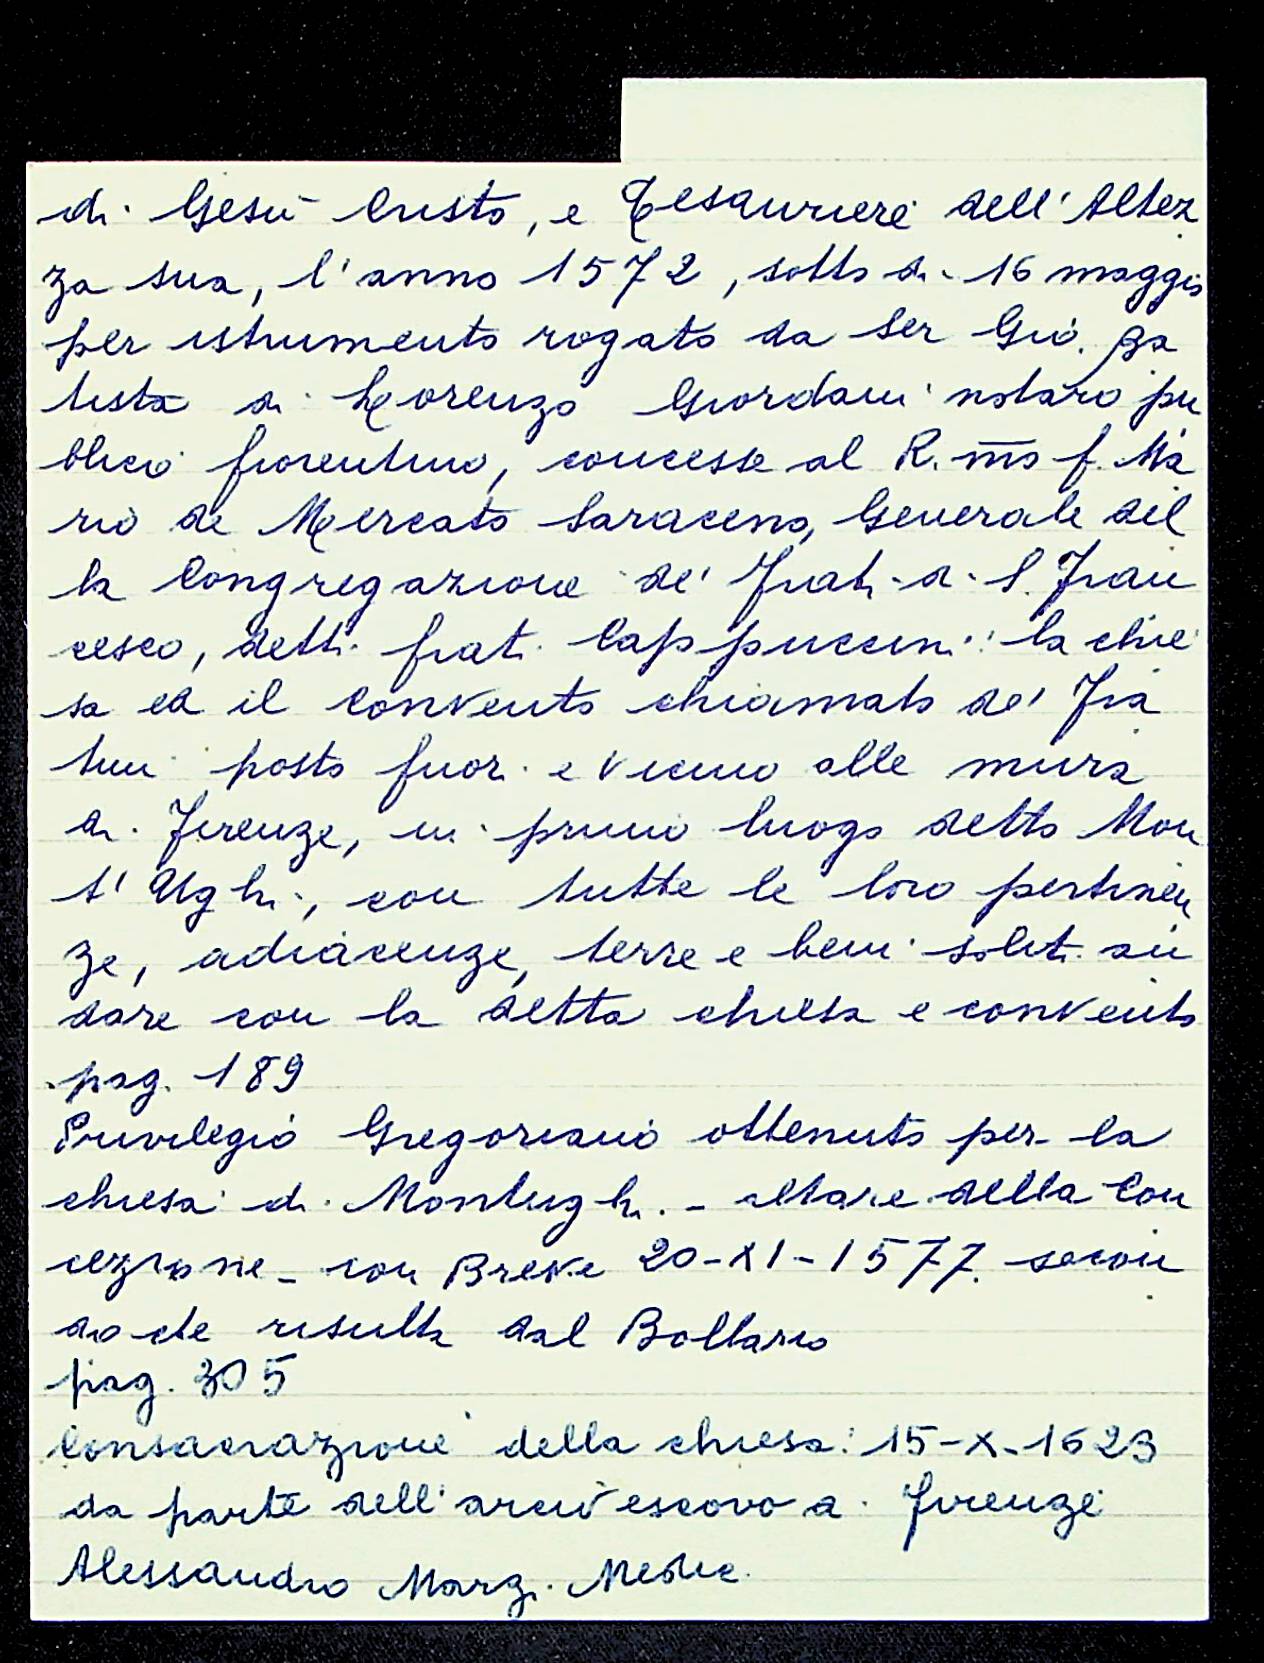 di Gesù Cristo, e Tesauriere dell'Altez
za sua, l'anno 1572, sotto di 16 maggio
per istrumento rogato da Ser Gio. Ba
tista di Lorenzo Giordani notaro pu
blico fiorentino, concesse al R.mo f. Ma
rio de Mercato Saraceno, Generale del
la Congregazione de' Frati di S. Fran
cesco, detti frati Cappuccini: la chie
sa ed il Convento chiamato de' Fra
tini posto fuori e vicino alle mura
di Firenze, in primo luogo detto Mon
t'Ughi, con tutte le loro pertinen
ze, adiacenze, terre e beni soliti an
dare con la detta chiesa e convento
pag. 189
Privilegio Gregoriano ottenuto per la
chiesa di Montughi - altare della Con
cezione - con Breve 20-XI-1577 secon
do che risulta dal Bollario
pag. 305
Consacrazione della chiesa: 15-X-1623
da parte dell'arcivescovo di Firenze
Alessandro Marzi Medici